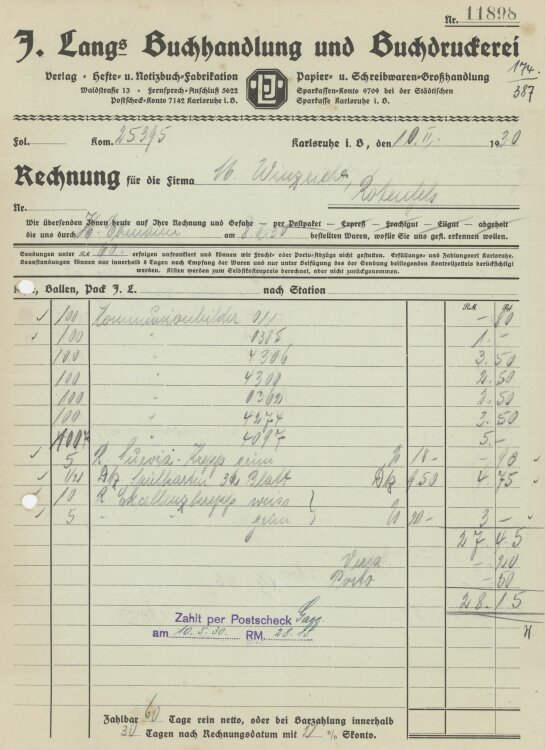 Nr. 11898
J. Langs Buchhandlung und Buchdruckerei
Verlag · Hefte- u. Notizbuch-Fabrikation
Papier- u. Schreibwaren-Großhandlung
174
387
Waldstraße 13 · Fernsprech-Anschluß 5622
Sparkassen-Konto 9709 bei der Städtischen
Postscheck-Konto 7142 Karlsruhe i. B.
Sparkasse Karlsruhe i. B.
Fol. Kom. 25395 Karlsruhe i. B, den 10. II. 1930
Rechnung für die Firma M. Rotenfels
Nr.
Wir übersenden Ihnen heute auf Ihre Rechnung und Gefahr — per Postpaket — Expreß — Frachtgut — Eilgut — abgeholt
die uns durch am bestellten Waren, wofür Sie uns gefl. erkennen wollen.
Sendungen unter RM 60.– erfolgen unfrankiert und können wir Fracht- oder Portoabzüge nicht gestatten. Erfüllungs- und Zahlungsort Karlsruhe.
Beanstandungen können nur innerhalb 8 Tagen nach Empfang der Waren und nur unter Beifügung des der Sendung beiliegenden Kontrollzettels berücksichtigt
werden. Kisten werden zum Selbstkostenpreis berechnet, aber nicht zurückgenommen.
Ballen, Pack J. L. nach Station
RM Pf.
100 Kommunionbilder 011 – 80
100 " 0385 1. –
100 " 4306 3. 50
100 " 4300 2. 50
100 " 0362 2. 50
100 " 4274 3. 50
100 " 4097 5. –
5 R. Suevia-Krepp grün % 18 – – 90
1/2 Dtz Spielkarten 36 Blatt Dtz 9.50 4 75
10 R Excellenzkrepp weiss
5 " " grün % 20 – 3 –
27. 45
Verp – 20
Porto – 50
28. 15
Zahlt per Postscheck
am 10.5.30. RM. 28.15
Zahlbar 60 Tage rein netto, oder bei Barzahlung innerhalb
30 Tagen nach Rechnungsdatum mit 2 % Skonto.